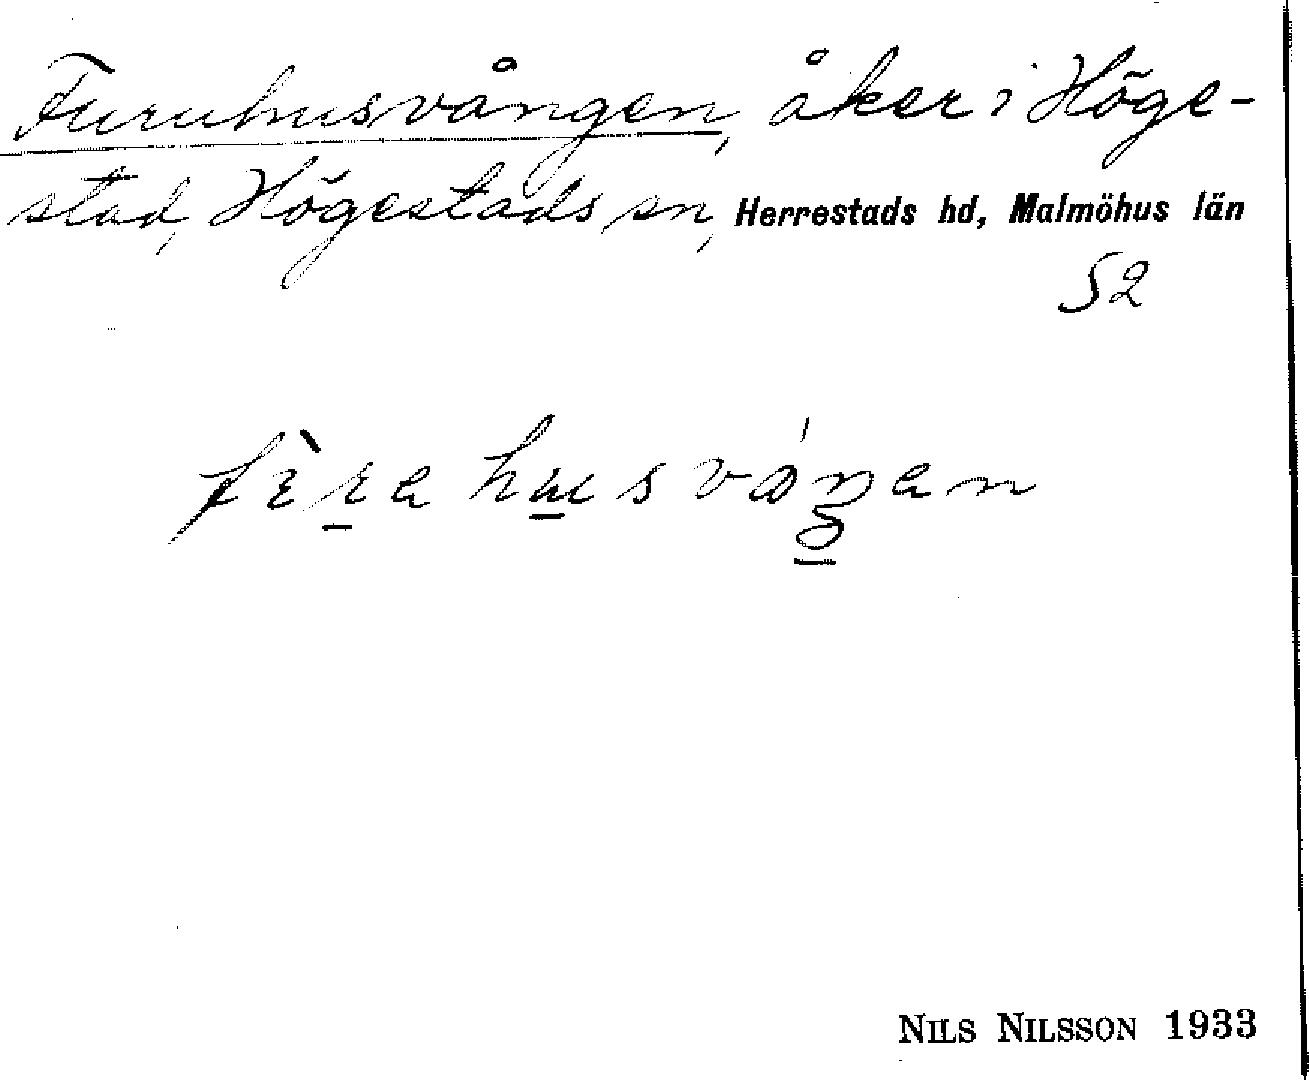 Furuhusvången, åker i Höge-
stad, Högestads sn, Herrestads hd, Malmöhus län
52
NILS NILSSON 1933